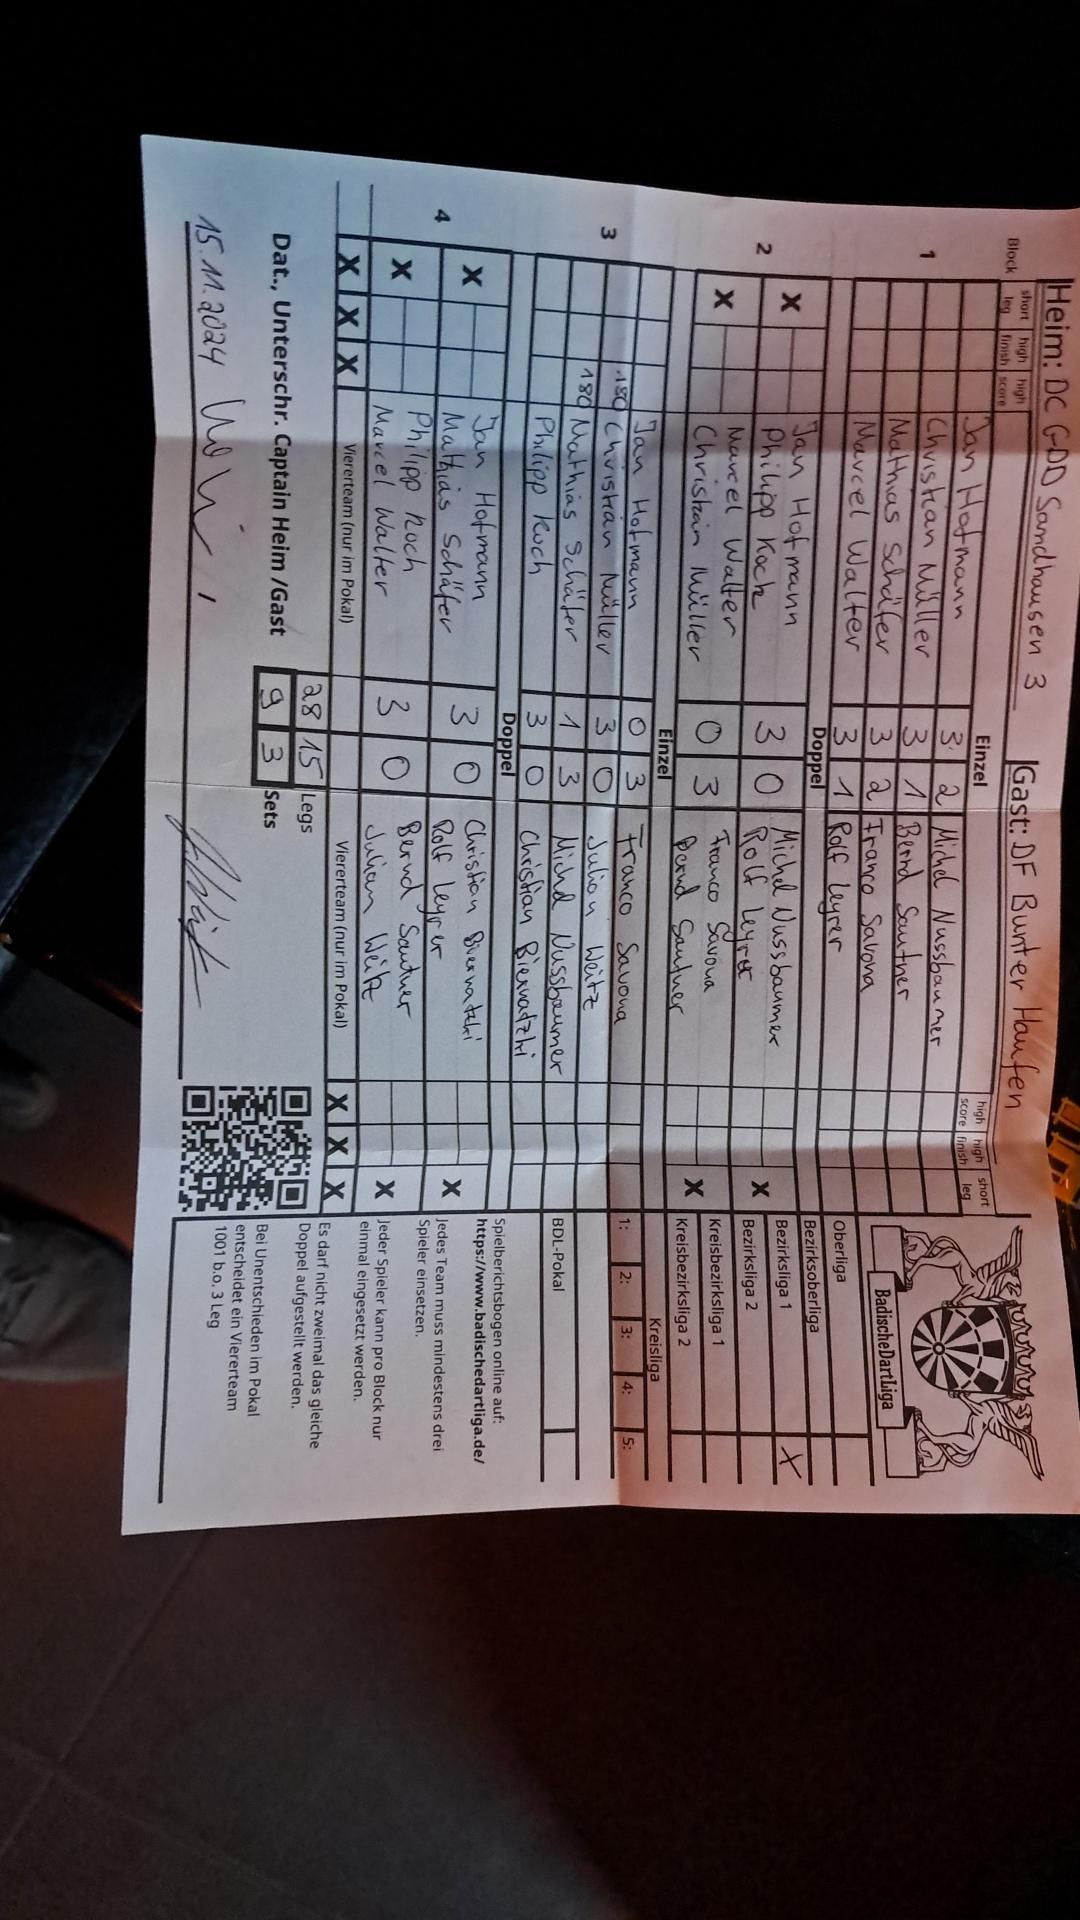 Heim: DC GDD Sandhausen 3 Gast: DF Bunter Haufen
Block short leg high finish high score Einzel high score high finish short leg
1 Jan Hofmann 3 2 Michel Nussbaumer
Christian Müller 3 1 Bernd Sautner
Mathias Schäfer 3 2 Franco Savona
Marcel Walter 3 1 Rolf Leyrer
Doppel
2 X Jan Hofmann 3 0 Michel Nussbaumer X
Philipp Koch Rolf Leyrer
X Marcel Walter 0 3 Franco Savona X
Christian Müller Bernd Sautner
Einzel
3 Jan Hofmann 0 3 Franco Savona
180 Christian Müller 3 0 Julian Weitz
180 Mathias Schäfer 1 3 Michel Nussbaumer
Philipp Koch 3 0 Christian Biernatzki
Doppel
4 X Jan Hofmann 3 0 Christian Biernatzki X
Mathias Schäfer Rolf Leyrer
X Philipp Koch 3 0 Bernd Sautner X
Marcel Walter Julian Weitz
X X X Viererteam (nur im Pokal) Viererteam (nur im Pokal) X X X
28 15 Legs
Dat., Unterschr. Captain Heim /Gast 9 3 Sets
15.11.2024
BadischeDartLiga
Oberliga
Bezirksoberliga
Bezirksliga 1 X
Bezirksliga 2
Kreisbezirksliga 1
Kreisbezirksliga 2
Kreisliga
1: 2: 3: 4: 5:
BDL-Pokal
Spielberichtsbogen online auf:
https://www.badischedartliga.de/
Jedes Team muss mindestens drei
Spieler einsetzen.
Jeder Spieler kann pro Block nur
einmal eingesetzt werden.
Es darf nicht zweimal das gleiche
Doppel aufgestellt werden.
Bei Unentschieden im Pokal
entscheidet ein Viererteam
1001 b.o. 3 Leg